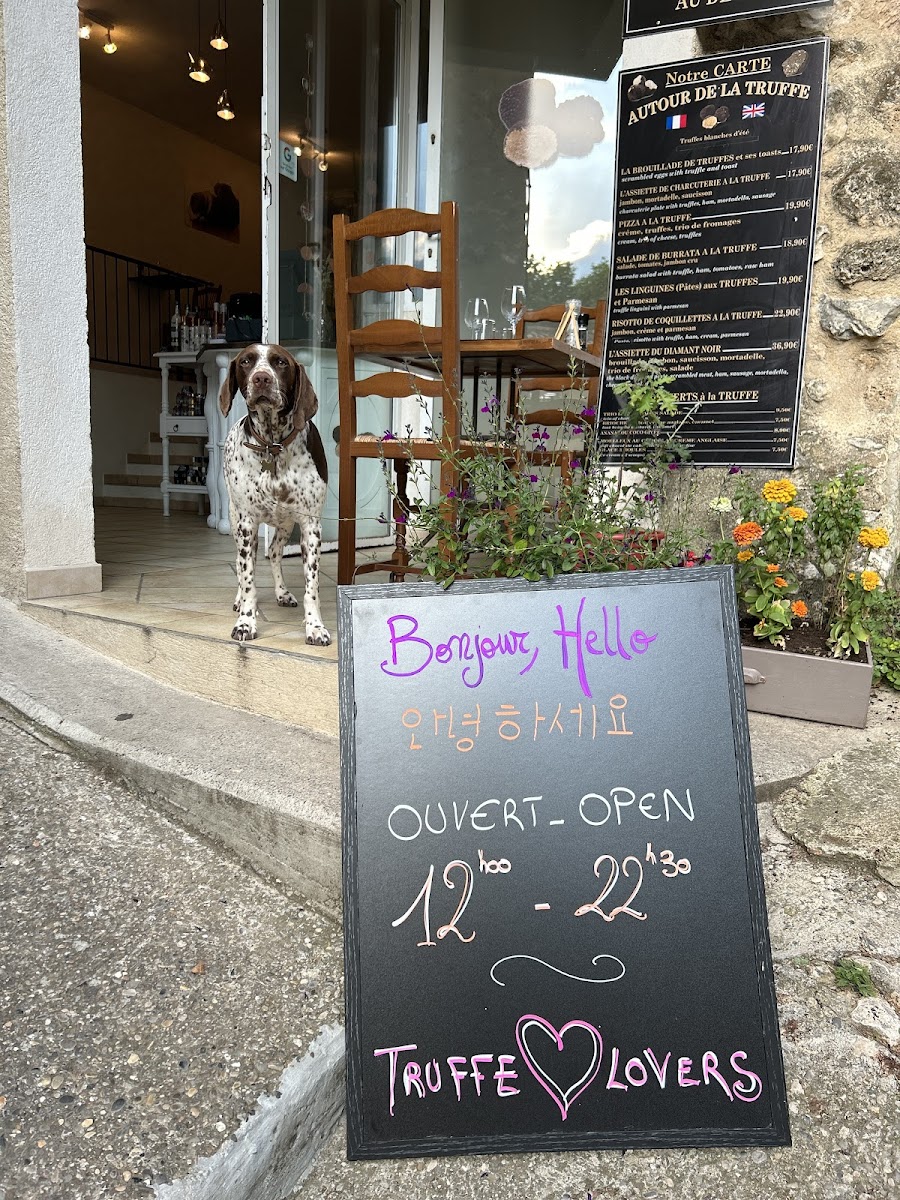 Notre CARTE
AUTOUR DE LA TRUFFE
Truffes blanches d'été
LA BROUILLADE DE TRUFFES et ses toasts 17,90€
scrambled eggs with truffle and toast
L'ASSIETTE DE CHARCUTERIE A LA TRUFFE 17,90€
jambon, mortadelle, saucisson
charcuterie plate with truffles, ham, mortadella, sausage
PIZZA A LA TRUFFE 19,90€
crème, truffes, trio de fromages
cream, trio of cheese, truffles
SALADE DE BURRATA A LA TRUFFE 18,90€
salade, tomates, jambon cru
burrata salad with truffle, ham, tomatoes, raw ham
LES LINGUINES (Pâtes) aux TRUFFES 19,90€
et Parmesan
truffle linguini with parmesan
RISOTTO DE COQUILLETTES A LA TRUFFE 22,90€
jambon, crème et parmesan
risotto with truffle, ham, cream, parmesan
L'ASSIETTE DU DIAMANT NOIR 36,90€
brouillade, jambon, saucisson, mortadelle,
trio de fromages, salade
scrambled meat, ham, sausage, mortadella,
à la TRUFFE
9,50€
7,50€
8,00€
7,50€
7,50€
G
Bonjour, Hello
안녕하세요
OUVERT - OPEN
12h00 - 22h30
TRUFFE LOVERS